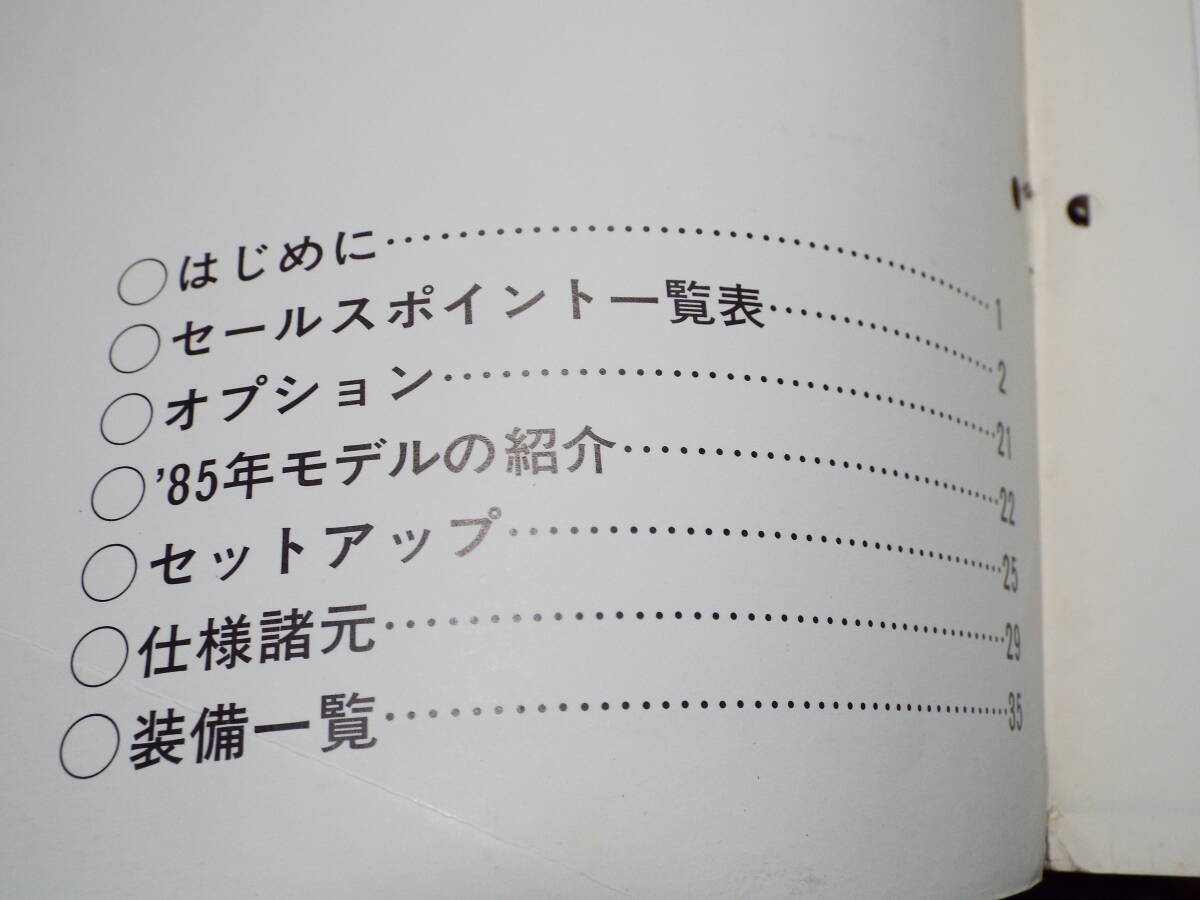 ○はじめに……………………………1
○セールスポイント一覧表……………2
○オプション…………………………21
○'85年モデルの紹介…………………22
○セットアップ………………………25
○仕様諸元……………………………29
○装備一覧……………………………35